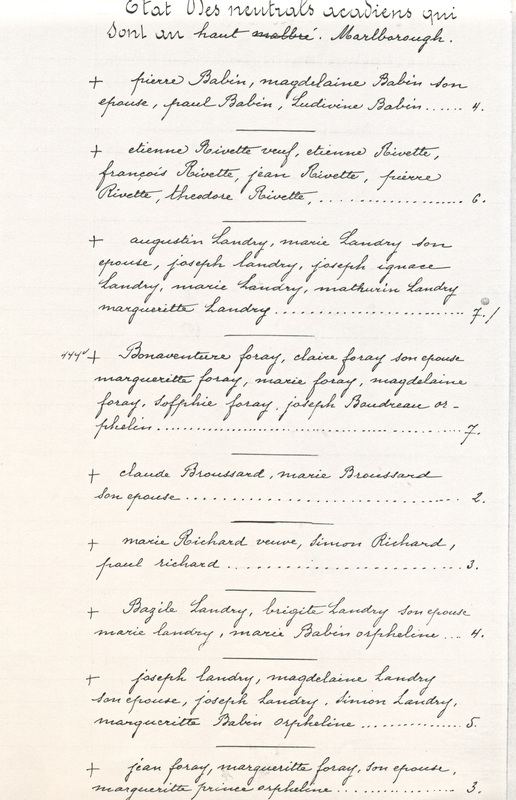 Etat Des neutrals acadiens qui
sont au haut malbré. Marlborough.
+ pierre Babin, magdelaine Babin son
epouse, paul Babin, Ludivine Babin...... 4.
+ etienne Rivette veuf, etienne Rivette,
françois Rivette, jean Rivette, pierre
Rivette, theodore Rivette,.................... 6.
+ augustin Landry, marie Landry son
epouse, joseph landry, joseph ignace
Landry, marie Landry, mathurin Landry
margueritte Landry........................ 7./
444d + Bonaventure foray, claire foray son epouse
margueritte foray, marie foray, magdelaine
foray, sofphie foray. joseph Boudreau or-
phelin........................................ 7.
+ claude Broussard, marie Broussard
son epouse.................................. 2.
+ marie Richard veuve, simon Richard,
paul richard.............................. 3.
+ Bazile Landry, brigite Landry son epouse
marie landry, marie Babin orpheline... 4.
+ joseph landry, magdelaine Landry
son epouse, joseph Landry, simon Landry,
margueritte Babin orpheline.............. 5.
+ jean foray, margueritte foray, son epouse,
margueritte prince orpheline............... 3.